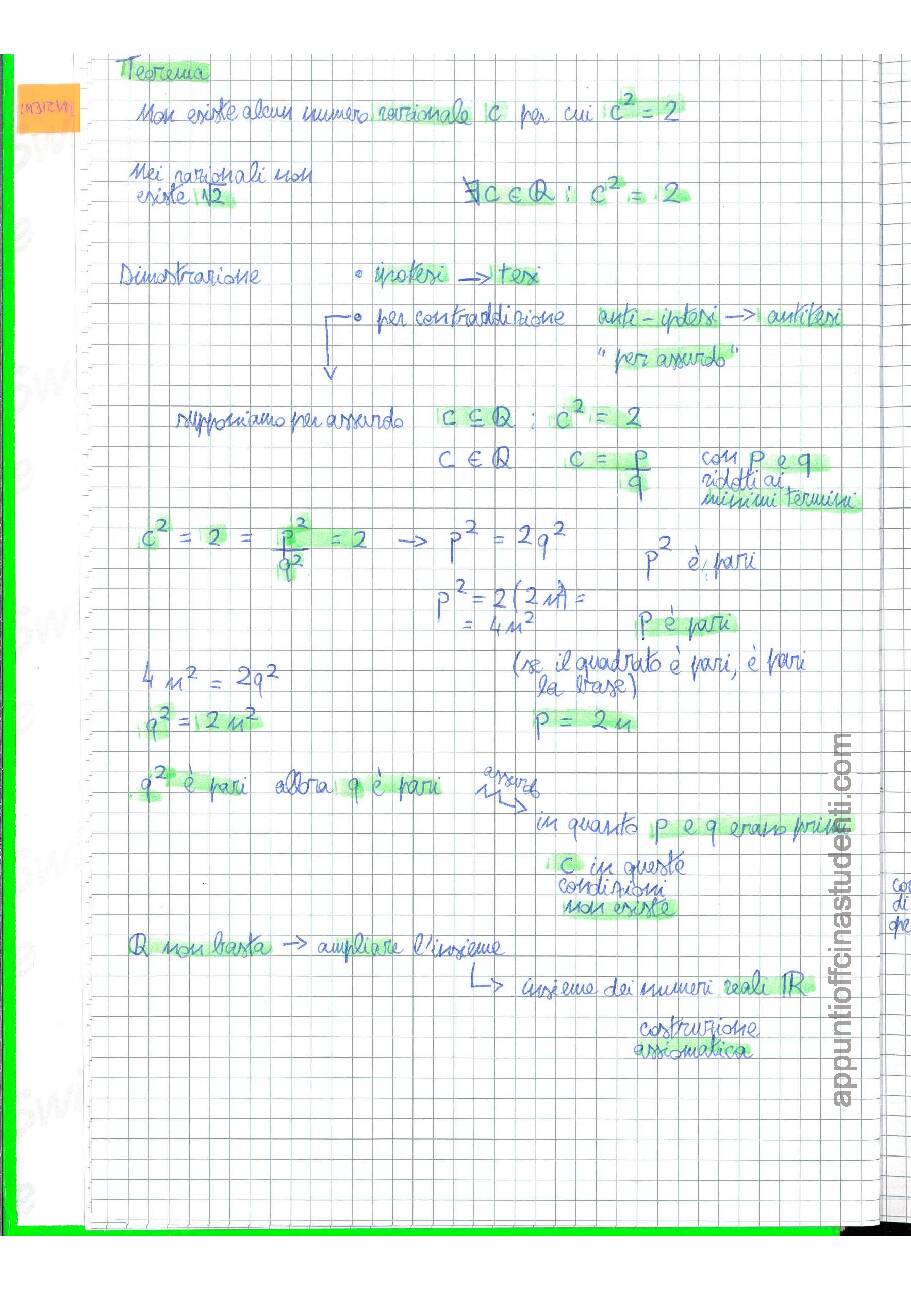 Teorema
INSIEMI
Non esiste alcun numero razionale c per cui c² = 2
Nei razionali non
esiste √2
∄ c ∈ Q : c² = 2
Dimostrazione
• ipotesi → tesi
• per contraddizione anti-iptesi → antitesi
"per assurdo"
supponiamo per assurdo c ⊆ Q : c² = 2
c ∈ Q c = p/q
con p e q
ridotti ai
minimi termini
c² = 2 = p²/q² = 2 → p² = 2q²
p² è pari
p² = 2(2n²) =
= 4n²
p è pari
(se il quadrato è pari, è pari
la base)
4n² = 2q²
q² = 2n²
p = 2n
q² è pari allora q è pari
assurdo
in quanto p e q erano primi
c in queste
condizioni
non esiste
Q non basta → ampliare l'insieme
↳ insieme dei numeri reali ℝ
costruzione
assiomatica
appuntioffcinastudenti.com
con
di
ope